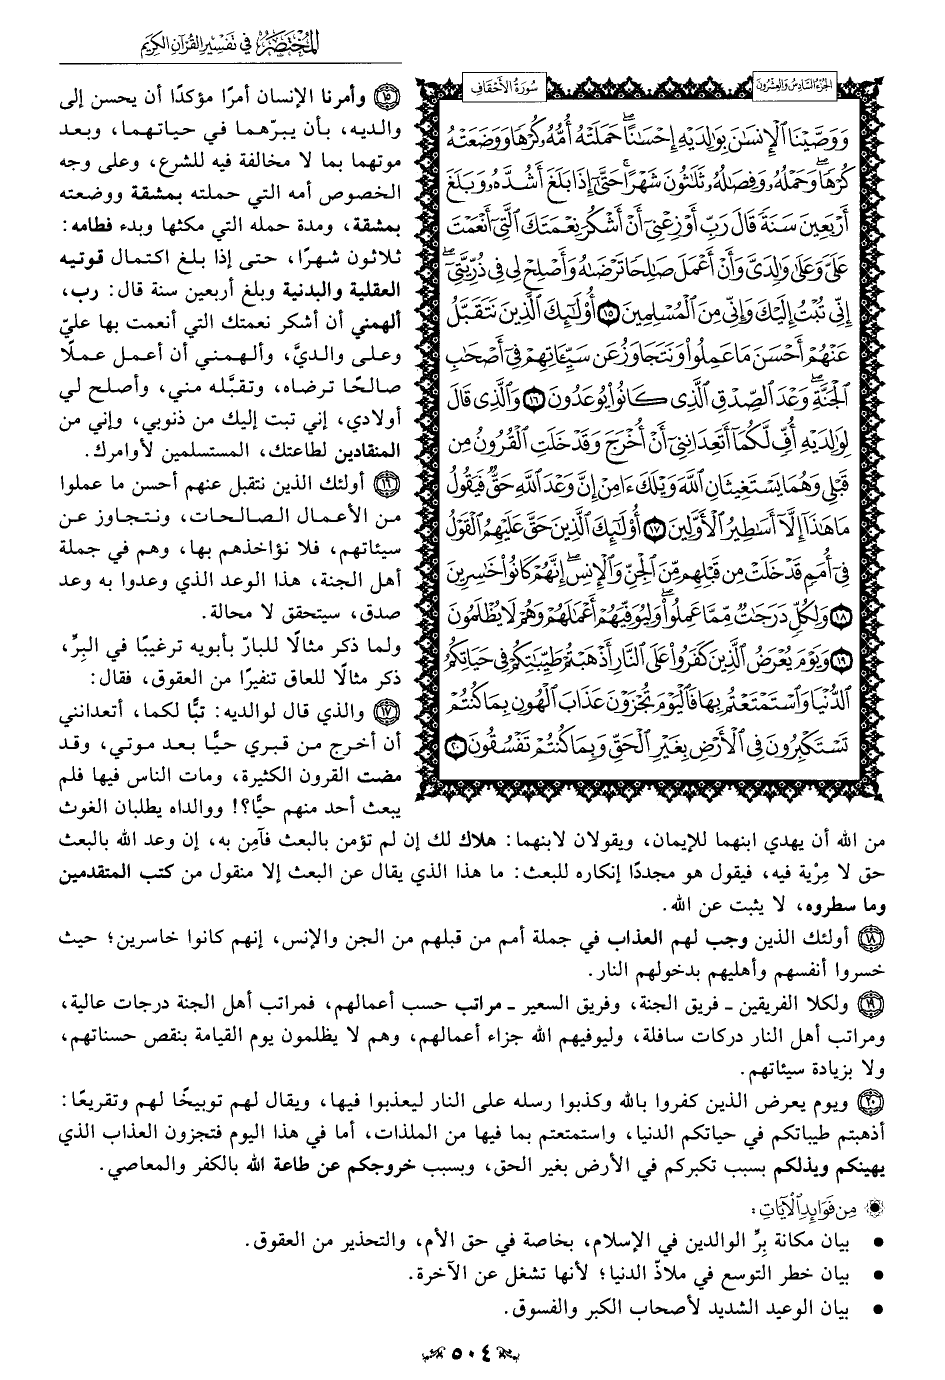 المختصر في تفسير القرآن الكريم
الجزء السادس والعشرون
سورة الأحقاف
وَوَصَّيْنَا ٱلْإِنسَٰنَ بِوَٰلِدَيْهِ إِحْسَٰنًاۖ حَمَلَتْهُ أُمُّهُۥ كُرْهًا وَوَضَعَتْهُ
كُرْهًاۖ وَحَمْلُهُۥ وَفِصَٰلُهُۥ ثَلَٰثُونَ شَهْرًاۚ حَتَّىٰٓ إِذَا بَلَغَ أَشُدَّهُۥ وَبَلَغَ
أَرْبَعِينَ سَنَةً قَالَ رَبِّ أَوْزِعْنِىٓ أَنْ أَشْكُرَ نِعْمَتَكَ ٱلَّتِىٓ أَنْعَمْتَ
عَلَىَّ وَعَلَىٰ وَٰلِدَىَّ وَأَنْ أَعْمَلَ صَٰلِحًا تَرْضَىٰهُ وَأَصْلِحْ لِى فِى ذُرِّيَّتِىٓۖ
إِنِّى تُبْتُ إِلَيْكَ وَإِنِّى مِنَ ٱلْمُسْلِمِينَ ١٥ أُو۟لَٰٓئِكَ ٱلَّذِينَ نَتَقَبَّلُ
عَنْهُمْ أَحْسَنَ مَا عَمِلُوا۟ وَنَتَجَاوَزُ عَن سَيِّـَٔاتِهِمْ فِىٓ أَصْحَٰبِ
ٱلْجَنَّةِۖ وَعْدَ ٱلصِّدْقِ ٱلَّذِى كَانُوا۟ يُوعَدُونَ ١٦ وَٱلَّذِى قَالَ
لِوَٰلِدَيْهِ أُفٍّ لَّكُمَآ أَتَعِدَانِنِىٓ أَنْ أُخْرَجَ وَقَدْ خَلَتِ ٱلْقُرُونُ مِن
قَبْلِى وَهُمَا يَسْتَغِيثَانِ ٱللَّهَ وَيْلَكَ ءَامِنْ إِنَّ وَعْدَ ٱللَّهِ حَقٌّ فَيَقُولُ
مَا هَٰذَآ إِلَّآ أَسَٰطِيرُ ٱلْأَوَّلِينَ ١٧ أُو۟لَٰٓئِكَ ٱلَّذِينَ حَقَّ عَلَيْهِمُ ٱلْقَوْلُ
فِىٓ أُمَمٍ قَدْ خَلَتْ مِن قَبْلِهِم مِّنَ ٱلْجِنِّ وَٱلْإِنسِۖ إِنَّهُمْ كَانُوا۟ خَٰسِرِينَ
١٨ وَلِكُلٍّ دَرَجَٰتٌ مِّمَّا عَمِلُوا۟ۖ وَلِيُوَفِّيَهُمْ أَعْمَٰلَهُمْ وَهُمْ لَا يُظْلَمُونَ
١٩ وَيَوْمَ يُعْرَضُ ٱلَّذِينَ كَفَرُوا۟ عَلَى ٱلنَّارِ أَذْهَبْتُمْ طَيِّبَٰتِكُمْ فِى حَيَاتِكُمُ
ٱلدُّنْيَا وَٱسْتَمْتَعْتُم بِهَا فَٱلْيَوْمَ تُجْزَوْنَ عَذَابَ ٱلْهُونِ بِمَا كُنتُمْ
تَسْتَكْبِرُونَ فِى ٱلْأَرْضِ بِغَيْرِ ٱلْحَقِّ وَبِمَا كُنتُمْ تَفْسُقُونَ ٢٠
١٥ وأمرنا الإنسان أمرًا مؤكدًا أن يحسن إلى
والديه، بأن يبرّهما في حياتهما، وبعد
موتهما بما لا مخالفة فيه للشرع، وعلى وجه
الخصوص أمه التي حملته بمشقة ووضعته
بمشقة، ومدة حمله التي مكثها وبدء فطامه:
ثلاثون شهرًا، حتى إذا بلغ اكتمال قوتيه
العقلية والبدنية وبلغ أربعين سنة قال: رب،
ألهمني أن أشكر نعمتك التي أنعمت بها عليّ
وعلى والديَّ، وألهمني أن أعمل عملًا
صالحًا ترضاه، وتقبَّله مني، وأصلح لي
أولادي، إني تبت إليك من ذنوبي، وإني من
المنقادين لطاعتك، المستسلمين لأوامرك.
١٦ أولئك الذين نتقبل عنهم أحسن ما عملوا
من الأعمال الصالحات، ونتجاوز عن
سيئاتهم، فلا نؤاخذهم بها، وهم في جملة
أهل الجنة، هذا الوعد الذي وعدوا به وعد
صدق، سيتحقق لا محالة.
ولما ذكر مثالًا للبارّ بأبويه ترغيبًا في البِرِّ،
ذكر مثالًا للعاق تنفيرًا من العقوق، فقال:
١٧ والذي قال لوالديه: تبًّا لكما، أتعدانني
أن أخرج من قبري حيًّا بعد موتي، وقد
مضت القرون الكثيرة، ومات الناس فيها فلم
يبعث أحد منهم حيًّا؟! ووالداه يطلبان الغوث
من الله أن يهدي ابنهما للإيمان، ويقولان لابنهما: هلاك لك إن لم تؤمن بالبعث فآمِن به، إن وعد الله بالبعث
حق لا مِرْية فيه، فيقول هو مجددًا إنكاره للبعث: ما هذا الذي يقال عن البعث إلا منقول من كتب المتقدمين
وما سطروه، لا يثبت عن الله.
١٨ أولئك الذين وجب لهم العذاب في جملة أمم من قبلهم من الجن والإنس، إنهم كانوا خاسرين؛ حيث
خسروا أنفسهم وأهليهم بدخولهم النار.
١٩ ولكلا الفريقين ـ فريق الجنة، وفريق السعير ـ مراتب حسب أعمالهم، فمراتب أهل الجنة درجات عالية،
ومراتب أهل النار دركات سافلة، وليوفيهم الله جزاء أعمالهم، وهم لا يظلمون يوم القيامة بنقص حسناتهم،
ولا بزيادة سيئاتهم.
٢٠ ويوم يعرض الذين كفروا بالله وكذبوا رسله على النار ليعذبوا فيها، ويقال لهم توبيخًا لهم وتقريعًا:
أذهبتم طيباتكم في حياتكم الدنيا، واستمتعتم بما فيها من الملذات، أما في هذا اليوم فتجزون العذاب الذي
يهينكم ويذلكم بسبب تكبركم في الأرض بغير الحق، وبسبب خروجكم عن طاعة الله بالكفر والمعاصي.
من فوائد الآيات:
• بيان مكانة بِرِّ الوالدين في الإسلام، بخاصة في حق الأم، والتحذير من العقوق.
• بيان خطر التوسع في ملاذّ الدنيا؛ لأنها تشغل عن الآخرة.
• بيان الوعيد الشديد لأصحاب الكبر والفسوق.
٥٠٤